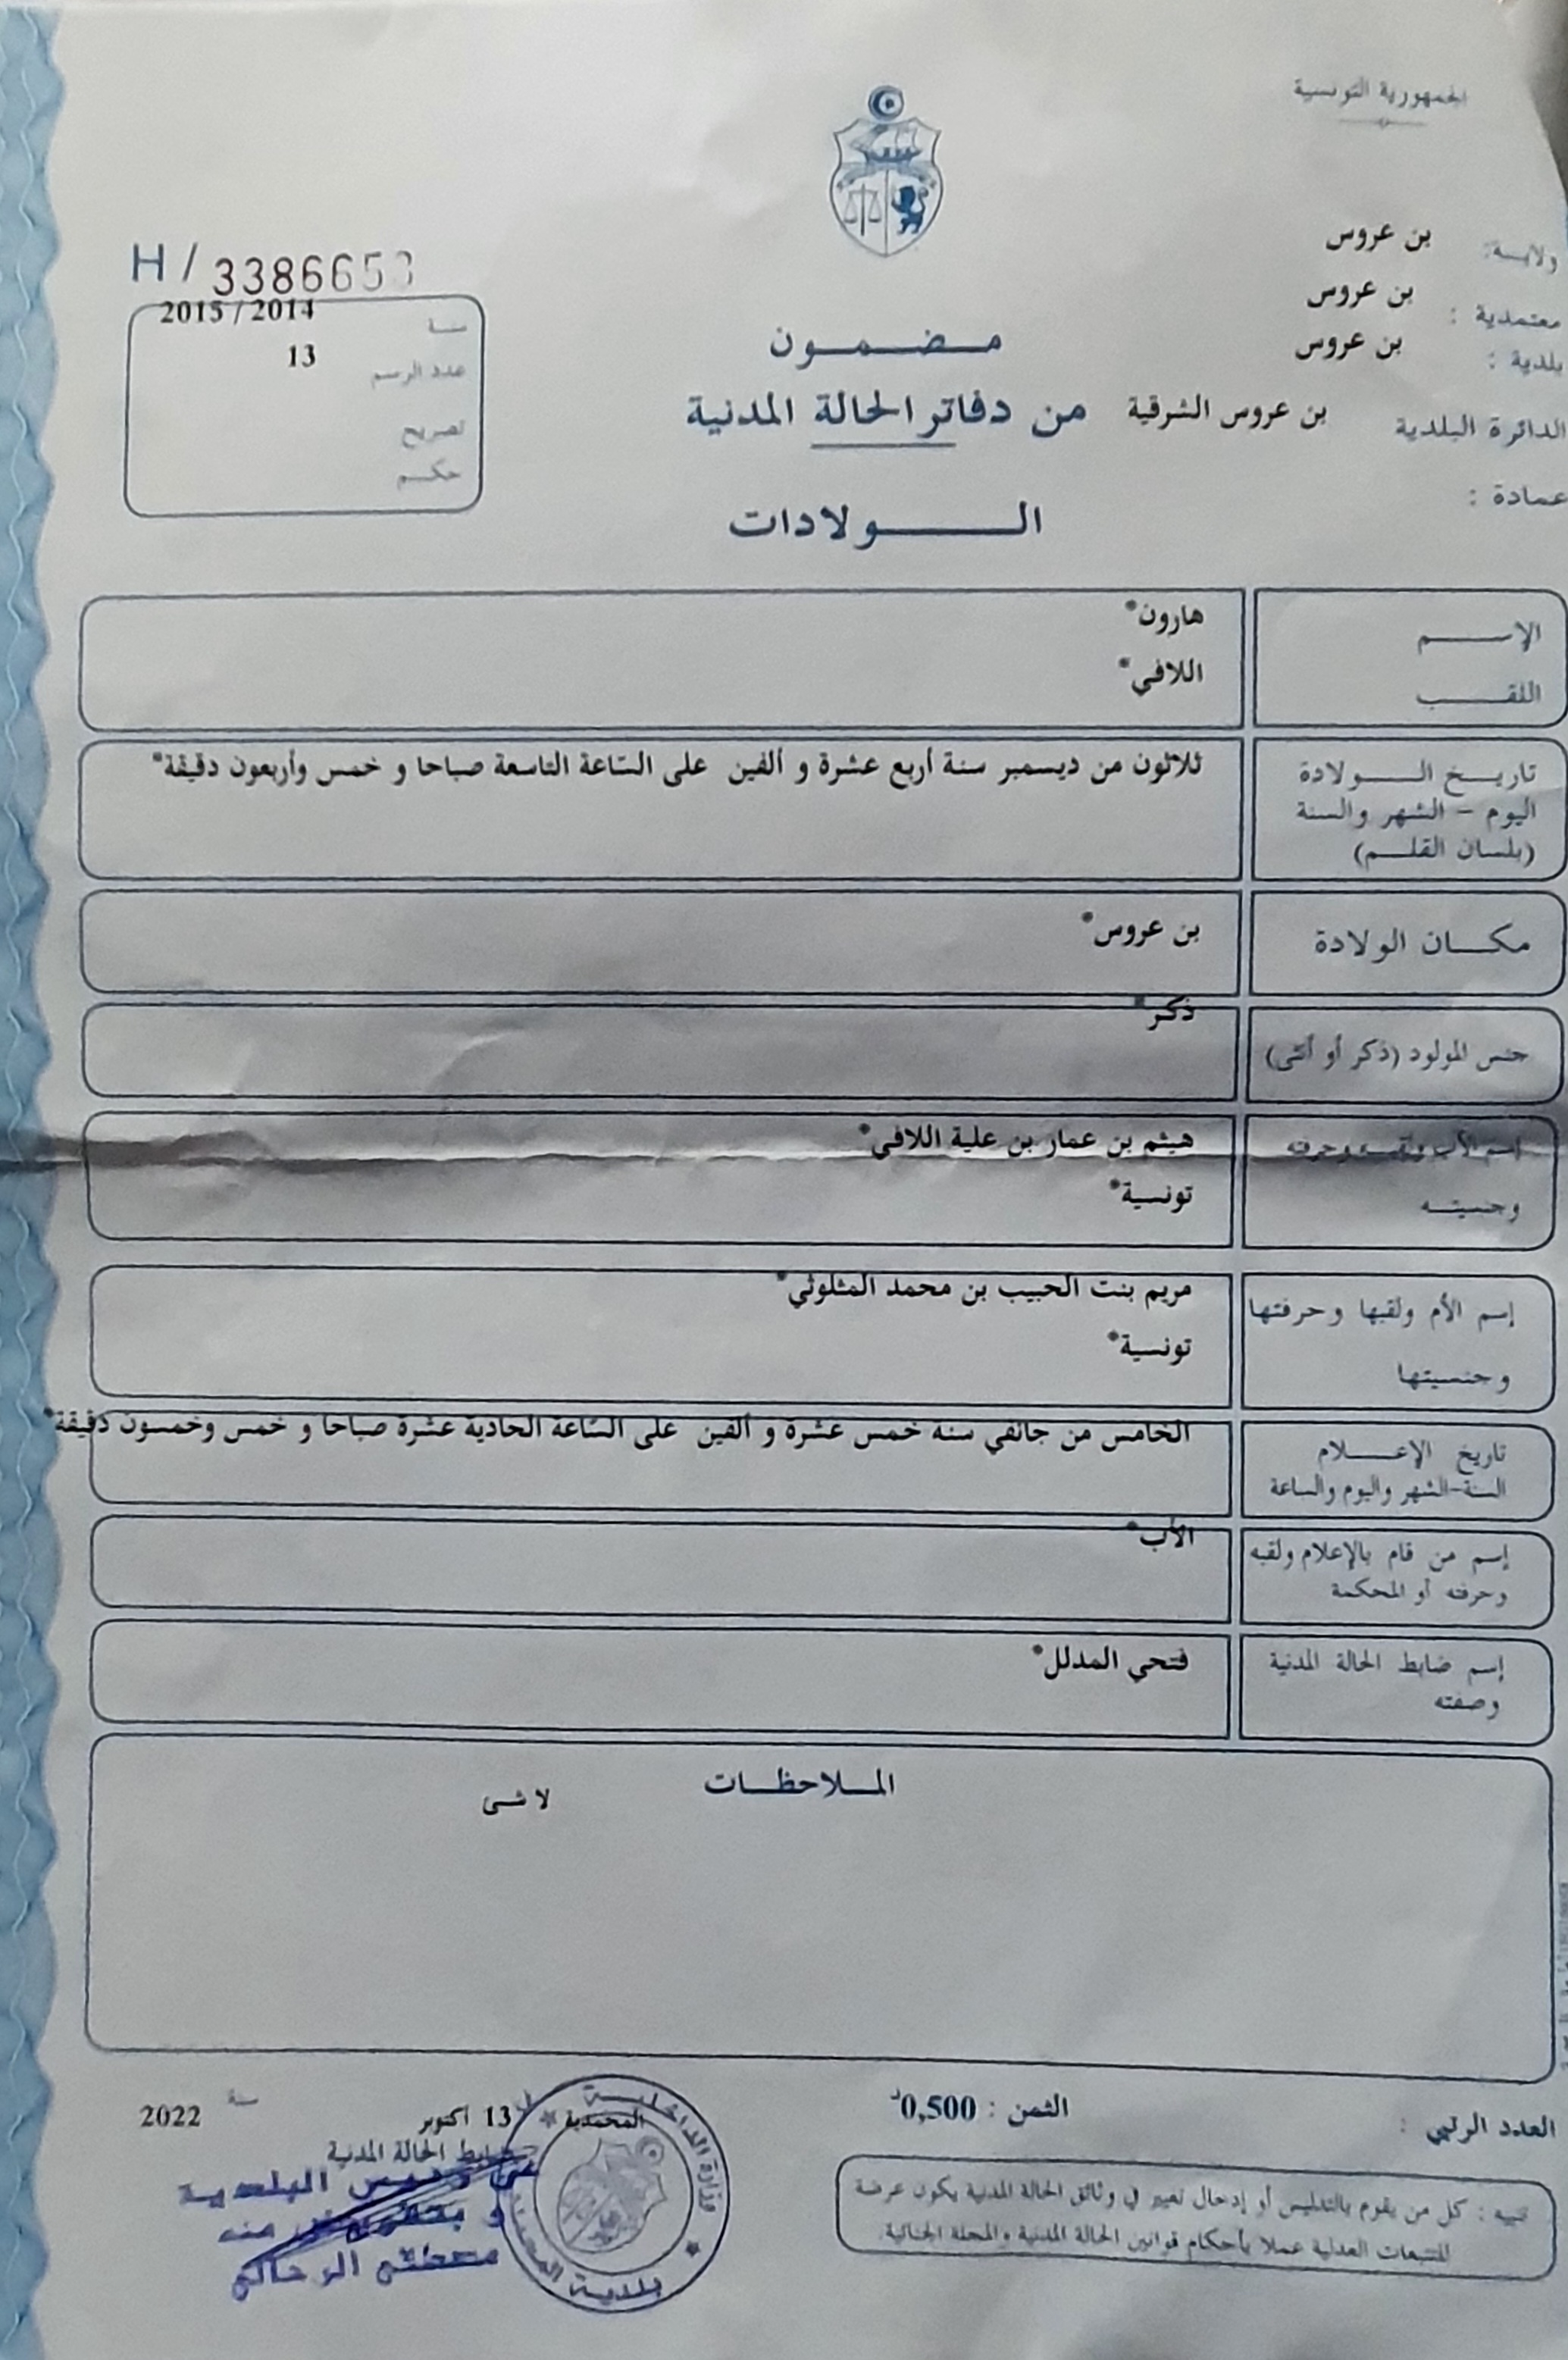 الجمهورية التونسية
ولاية: بن عروس
معتمدية : بن عروس
بلدية : بن عروس
الدائرة البلدية بن عروس الشرقية
عمادة :
H / 338665
سنة 2015 / 2014
عدد الرسم 13
تصريح
حكم
مضمون
من دفاتر الحالة المدنية
الولادات
الإسم هارون*
اللقب اللافي*
تاريخ الولادة
اليوم - الشهر والسنة
(بلسان القلم)
ثلاثون من ديسمبر سنة أربع عشرة و ألفين على الساعة التاسعة صباحا و خمس وأربعون دقيقة*
مكان الولادة بن عروس*
جنس المولود (ذكر أو أنثى) ذكر*
إسم الأب ولقبه وحرفته هيثم بن عمار بن علية اللافي*
وجنسيته تونسية*
إسم الأم ولقبها وحرفتها مريم بنت الحبيب بن محمد المثلوثي*
وجنسيتها تونسية*
تاريخ الإعلام
السنة-الشهر واليوم والساعة
الخامس من جانفي سنة خمس عشرة و ألفين على الساعة الحادية عشرة صباحا و خمس وخمسون دقيقة*
إسم من قام بالإعلام ولقبه
وحرفته أو المحكمة
الأب*
إسم ضابط الحالة المدنية
وصفته
فتحي المدلل*
الملاحظات
لا شى
العدد الرتبي :
الثمن : 0,500د
المحمدية 13 أكتوبر سنة 2022
ضابط الحالة المدنية
عن رئيس البلدية
و بتفويض منه
وزارة الداخلية
بلدية المحمدية
تنبيه : كل من يقوم بالتدليس أو إدخال تغيير في وثائق الحالة المدنية يكون عرضة
للتتبعات العدلية عملا بأحكام قوانين الحالة المدنية والمجلة الجنائية.